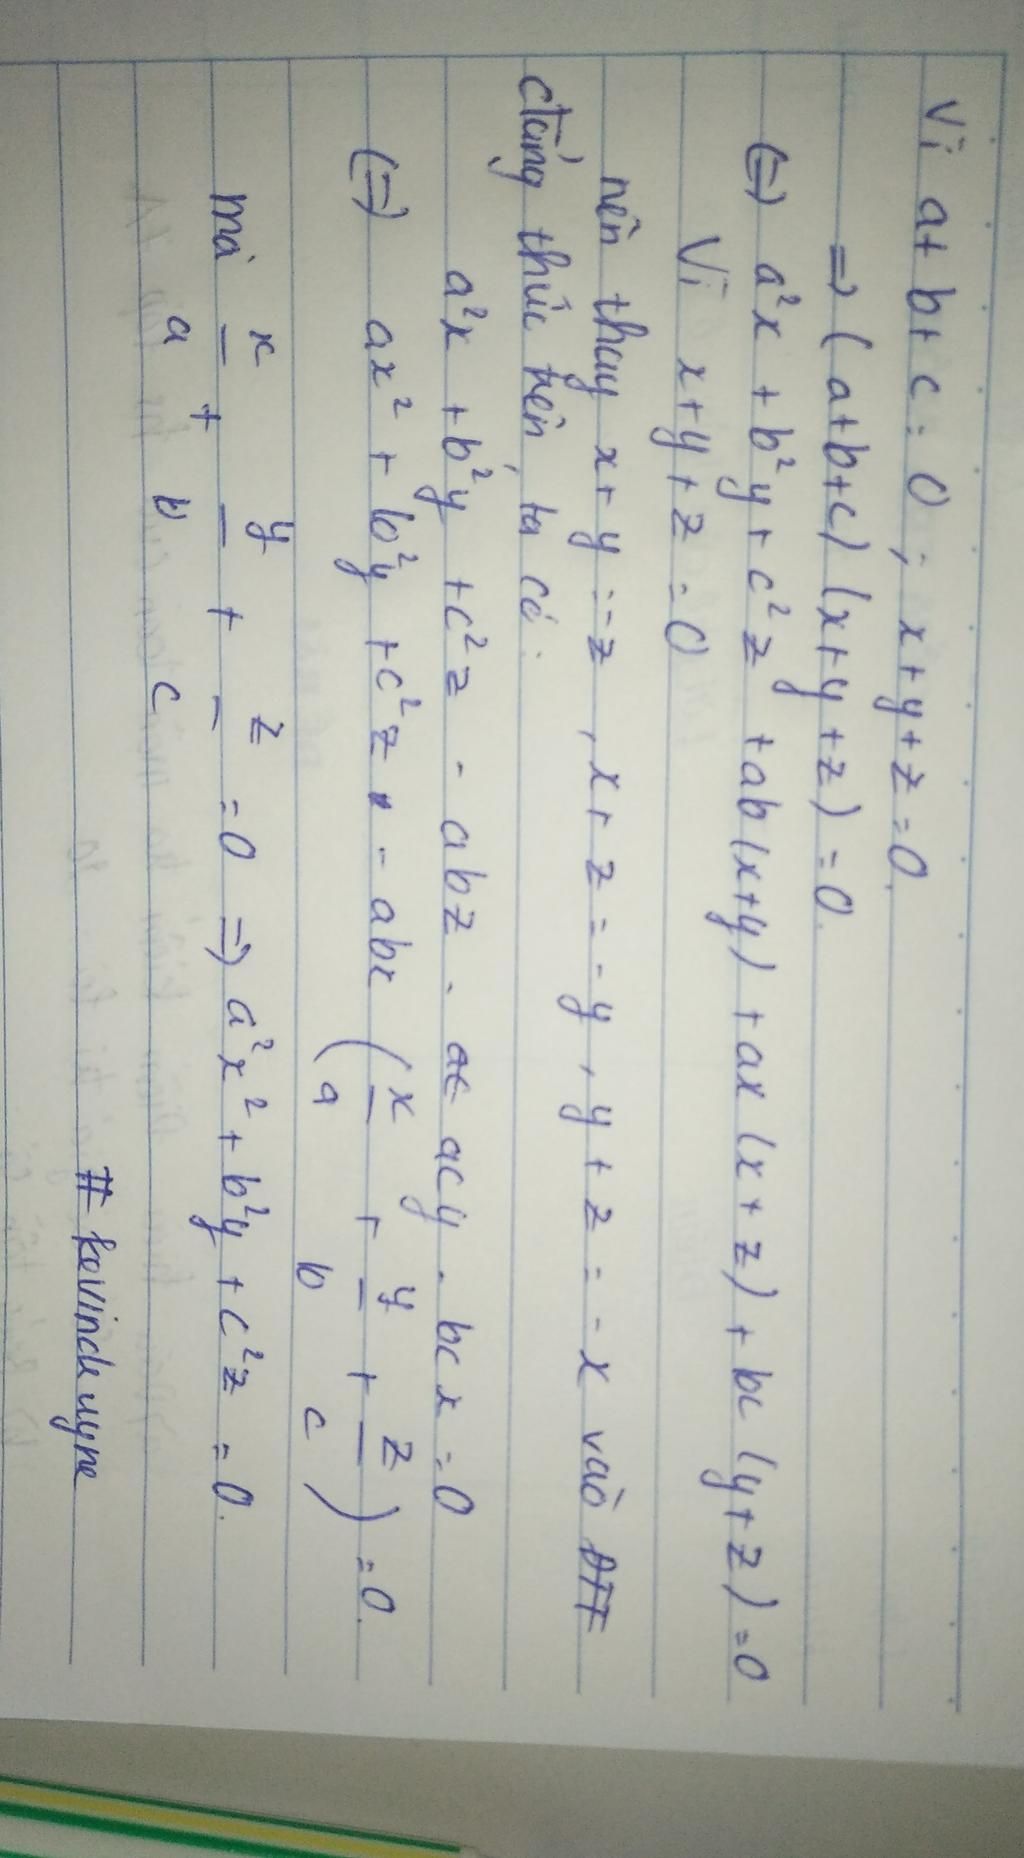 Vì a+ b+ c = 0 ; x+y+z=0.
=> (a+b+c) (x+y+z) =0.
(=) a²x + b²y + c²z +ab(x+y) +ax (x+z) + bc (y+z)=0
Vì x+y+z =0
nên thay x+y=-z , x+z=-y, y+z=-x vào ĐTT
đẳng thức trên, ta có :
a²x +b²y +c²z - abz - ac acy - bcx =0
(=) ax² + b²y +c²z - abx (x/a + y/b + z/c) =0.
mà x/a + y/b + z/c =0 => a²x² + b²y + c²z =0.